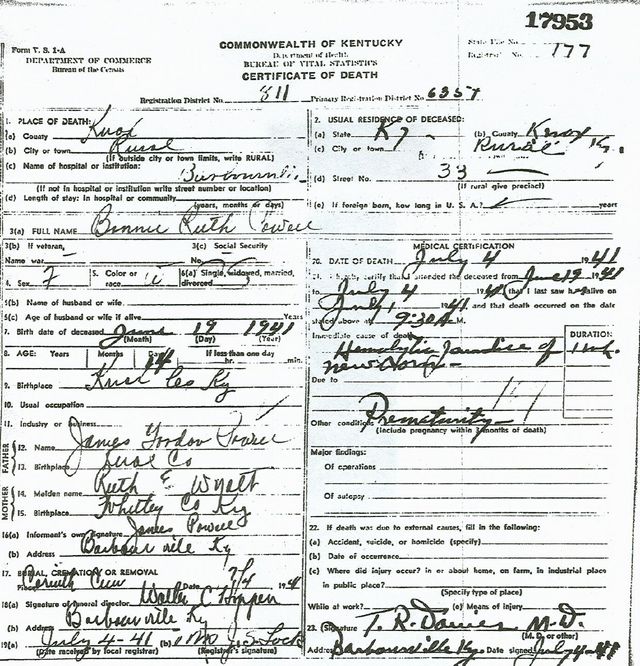 17953
Form V. S. 1-A
DEPARTMENT OF COMMERCE
Bureau of the Census
COMMONWEALTH OF KENTUCKY
Department of Health
BUREAU OF VITAL STATISTICS
CERTIFICATE OF DEATH
State File No.
Registrar's No. 177
Registration District No. 811 Primary Registration District No. 6357
1. PLACE OF DEATH:
(a) County Knox
(b) City or town Rural
(If outside city or town limits, write RURAL)
(c) Name of hospital or institution:
(If not in hospital or institution write street number or location)
(d) Length of stay: In hospital or community
(years, months or days)
2. USUAL RESIDENCE OF DECEASED:
(a) State Ky (b) County Knox
(c) City or town Rural
(d) Street No. 33
(If rural give precinct)
(e) If foreign born, how long in U. S. A.? years
3(a) FULL NAME Bonnie Ruth Powell
3(b) If veteran, 3(c) Social Security
Name war No.
4. Sex F 5. Color or race W 6(a) Single, widowed, married, divorced S
6(b) Name of husband or wife
6(c) Age of husband or wife if alive Years
7. Birth date of deceased June 19 1941
(Month) (Day) (Year)
8. AGE: Years Months Days If less than one day
14 hr. min.
9. Birthplace Knox Co Ky
10. Usual occupation
11. Industry or business
FATHER
12. Name James Gordon Powell
13. Birthplace Knox Co
MOTHER
14. Maiden name Ruth E Wyatt
15. Birthplace Whitley Co Ky
16(a) Informant's own Signature James Powell
(b) Address Barbourville Ky
17. BURIAL, CREMATION OR REMOVAL
Place Corinth Cem Date 7/4 1941
18(a) Signature of funeral director Walter C Hopper
(b) Address Barbourville Ky
19(a) July 4-41 (b)
(Date received by local registrar) (Registrar's signature)
MEDICAL CERTIFICATION
20. DATE OF DEATH July 4 1941
21. I hereby certify that I attended the deceased from June 19 1941
to July 4 1941 that I last saw her alive on
July 1 1941 and that death occurred on the date
stated above at 9:30 A M.
Immediate cause of death DURATION
Hemolytic Jaundice of 1 wk.
new born
Due to
Other conditions Prematurity
(Include pregnancy within 3 months of death)
Major findings:
Of operations
Of autopsy
22. If death was due to external causes, fill in the following:
(a) Accident, suicide, or homicide (specify)
(b) Date of occurrence
(c) Where did injury occur? in or about home, on farm, in industrial place
in public place?
(Specify type of place)
While at work? (e) Means of injury
23. Signature T. R. Davies M-D.
(M. D. or other)
Address Barbourville Ky Date signed July 4-41